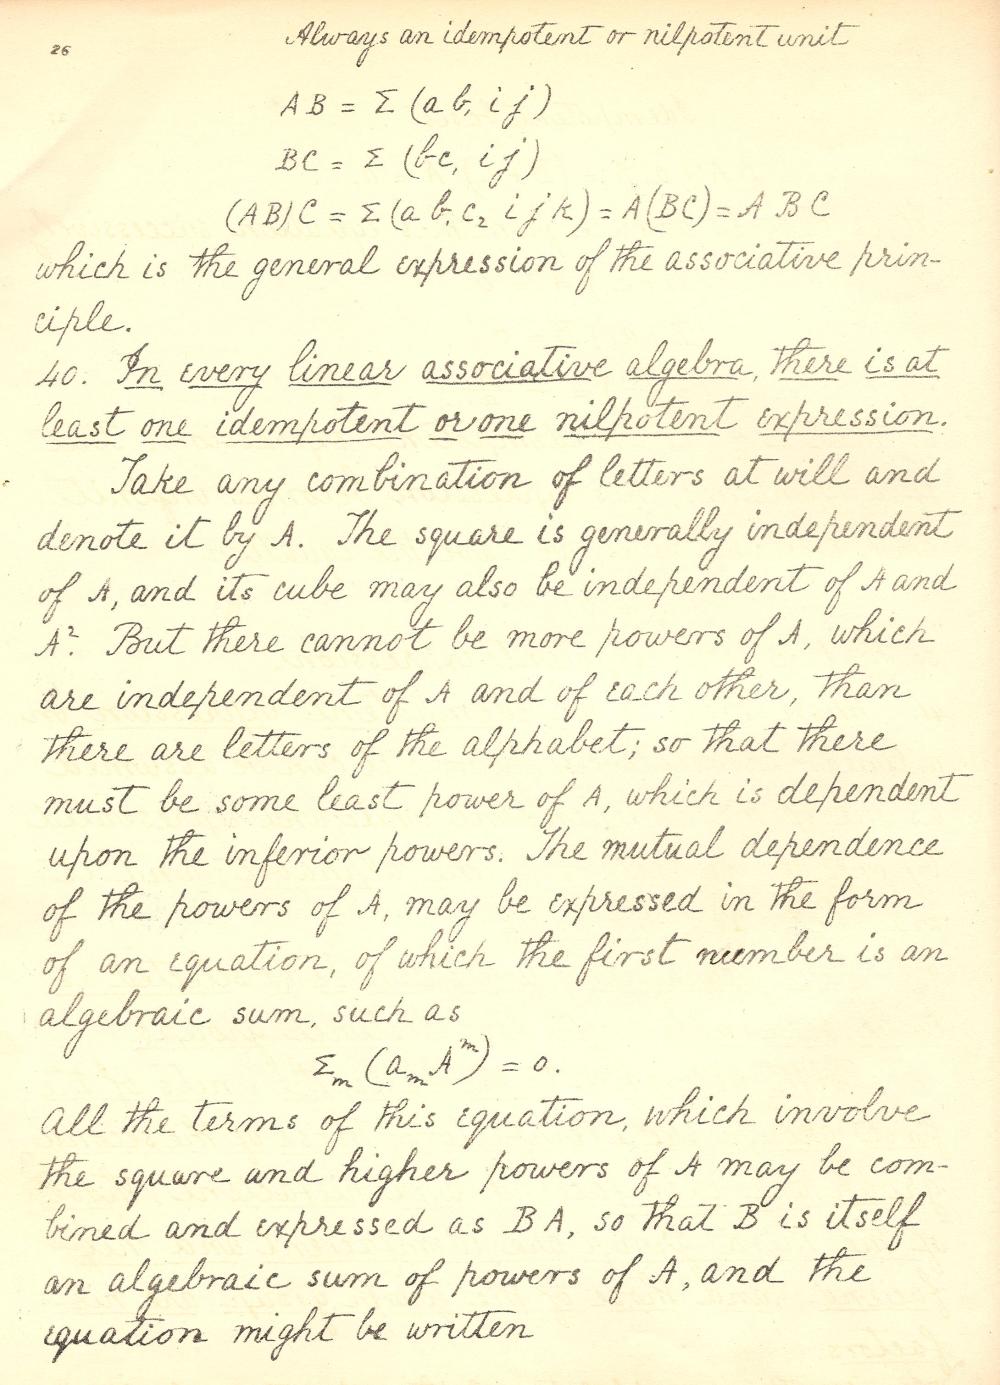 26
Always an idempotent or nilpotent unit
AB = Σ (ab, ij)
BC = Σ (bc, ij)
(AB)C = Σ (ab, c₂ ijk) = A(BC) = ABC
which is the general expression of the associative prin-
ciple.
40. In every linear associative algebra, there is at
least one idempotent or one nilpotent expression.
Take any combination of letters at will and
denote it by A. The square is generally independent
of A, and its cube may also be independent of A and
A². But there cannot be more powers of A, which
are independent of A and of each other, than
there are letters of the alphabet; so that there
must be some least power of A, which is dependent
upon the inferior powers. The mutual dependence
of the powers of A, may be expressed in the form
of an equation, of which the first number is an
algebraic sum, such as
Σₘ (aₘAᵐ) = 0.
All the terms of this equation, which involve
the square and higher powers of A may be com-
bined and expressed as BA, so that B is itself
an algebraic sum of powers of A, and the
equation might be written